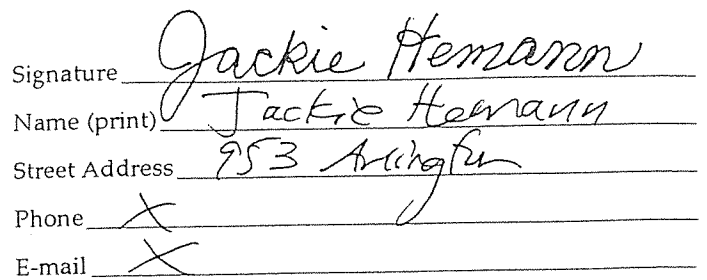 Signature Jackie Hemann
Name (print) Jackie Hemann
Street Address 953 Arlington
Phone X
E-mail X